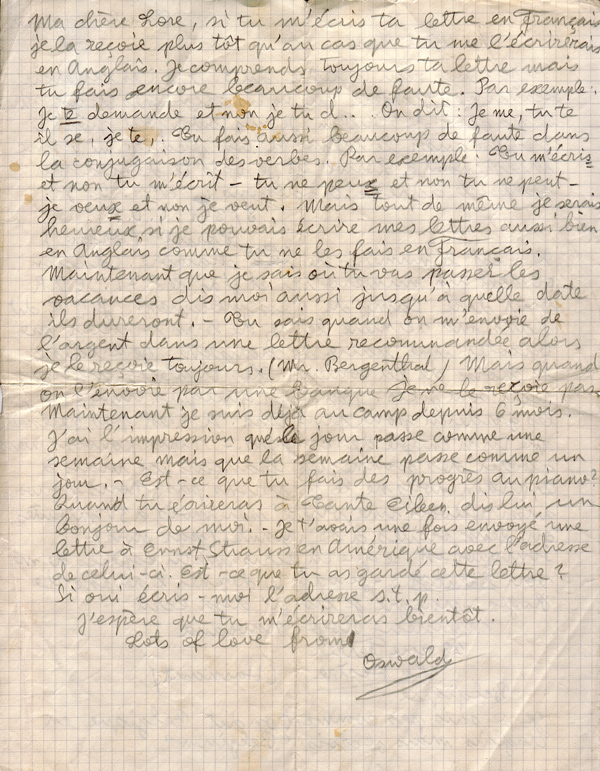 Ma chère Lore, si tu m'écris ta lettre en français
je la reçoie plus tôt qu'au cas que tu me l'écrirerais
en Anglais. Je comprends toujours ta lettre mais
tu fais encore beaucoup de faute. Par exemple.
Je te demande et non je tu d... On dit: Je me, tu te
il se, je te, Tu fais aussi beaucoup de faute dans
la conjugaison des verbes. Par exemple: Tu m'écris
et non tu m'écrit - tu ne peux et non tu ne peut -
je veux et non je vent. Mais tout de même je serais
heureux si je pouvais écrire mes lettres aussi bien
en Anglais comme tu ne les fais en français.
Maintenant que je sais où tu vas passer les
vacances dis moi aussi jusqu'à quelle date
ils dureront. - Tu sais quand on m'envoie de
l'argent dans une lettre recommandée alors
je le reçoie toujours. (Mr. Bergenthal) Mais quand
on l'envoie par une banque je ne le reçoie pas
Maintenant je suis déjà au camp depuis 6 mois.
J'ai l'impression que le jour passe comme une
semaine mais que la semaine passe comme un
jour. - Est-ce que tu fais des progrès au piano?
Quand tu écrireras à Tante Eileen dis lui un
bonjour de moi. - Je t'avais une fois envoyé une
lettre à Ernst Strauss en Amérique avec l'adresse
de celui-ci. Est-ce que tu as gardé cette lettre?
Si oui écris-moi l'adresse s.t.p.
J'espère que tu m'écrireras bientôt.
Lots of love from
Oswald